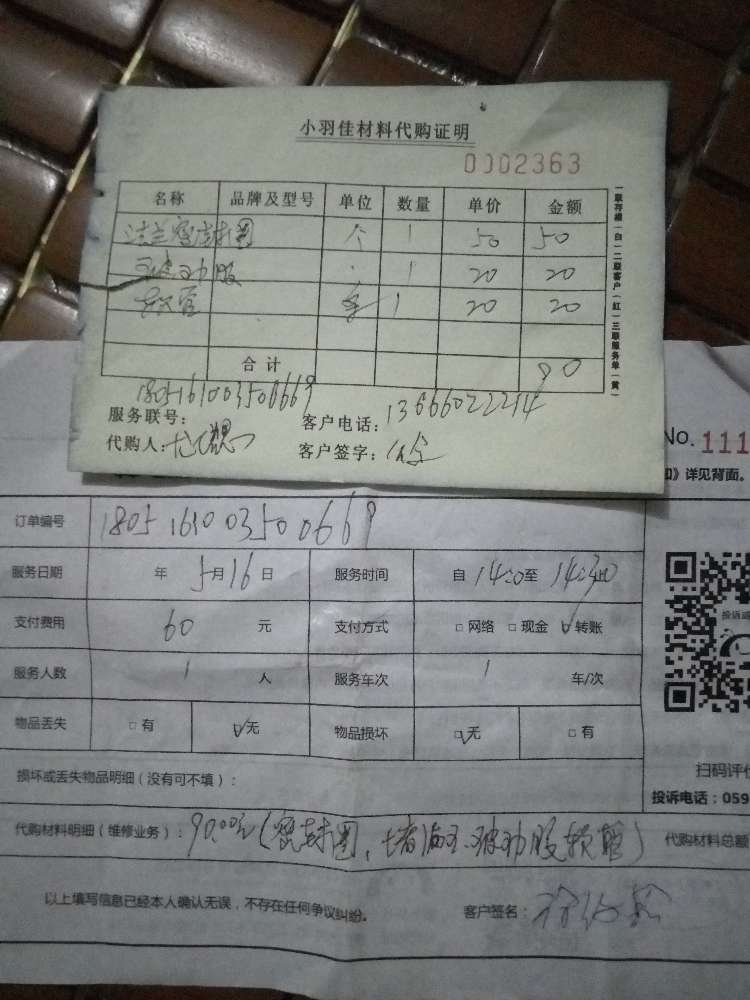 小羽佳材料代购证明
0002363
名称 品牌及型号 单位 数量 单价 金额
法兰密封圈 个 1 50 50
玻动胶 1 20 20
软管 1 20 20
合计 90
一联存根(白)二联客户(红)三联服务单(黄)
服务联号: 1805161003500669
客户电话: 13666022214
代购人:
客户签字: 徐
No. 111
知》详见背面。
订单编号 180516100350 0669
服务日期 年 5月16日 服务时间 自 14:20至 14:30止
支付费用 60 元 支付方式 □网络 □现金 ☑转账
服务人数 1 人 服务车次 1 车/次
物品丢失 □有 ☑无 物品损坏 ☑无 □有
投诉
扫码评价
损坏或丢失物品明细(没有可不填):
投诉电话:059
代购材料明细(维修业务): 90.00元(密封圈,
代购材料总额
以上填写信息已经本人确认无误,不存在任何争议纠纷。
客户签名: 徐